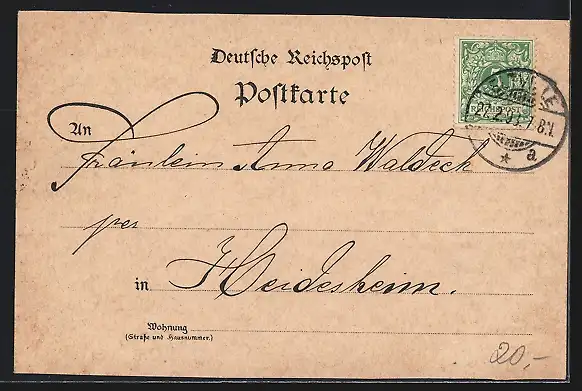 Deutsche Reichspost
Postkarte
An
Fräulein Anna Waldeck
per
in Heidesheim.
Wohnung
(Straße und Hausnummer.)
* a
20,-